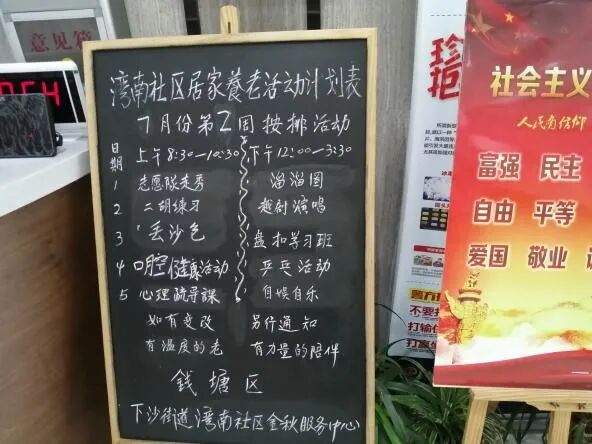 意见箱
湾南社区居家養老活动计划表
7月份第2周按排活动
日期 上午8:30—10:30 下午12:00—3:30
1 志愿队走秀 溜溜圈
2 二胡练习 越剧演唱
3 丢沙包 盘扣学习班
4 口腔健康活动 乒乓活动
5 心理疏导課 自娱自乐
如有变改 另行通知
有温度的老 有力量的陪伴
钱塘区
下沙街道湾南社区金秋服务(中心)
珍
拒
警方
不要
打输
打赢
社会主义
人民有信仰
富强 民主
自由 平等
爱国 敬业